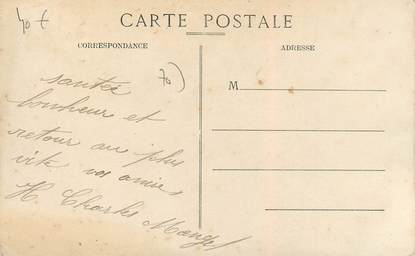 40 €
CARTE POSTALE
CORRESPONDANCE
ADRESSE
70)
M
santée
bonheur et
retour au plus
vite vos amies
H. Charles